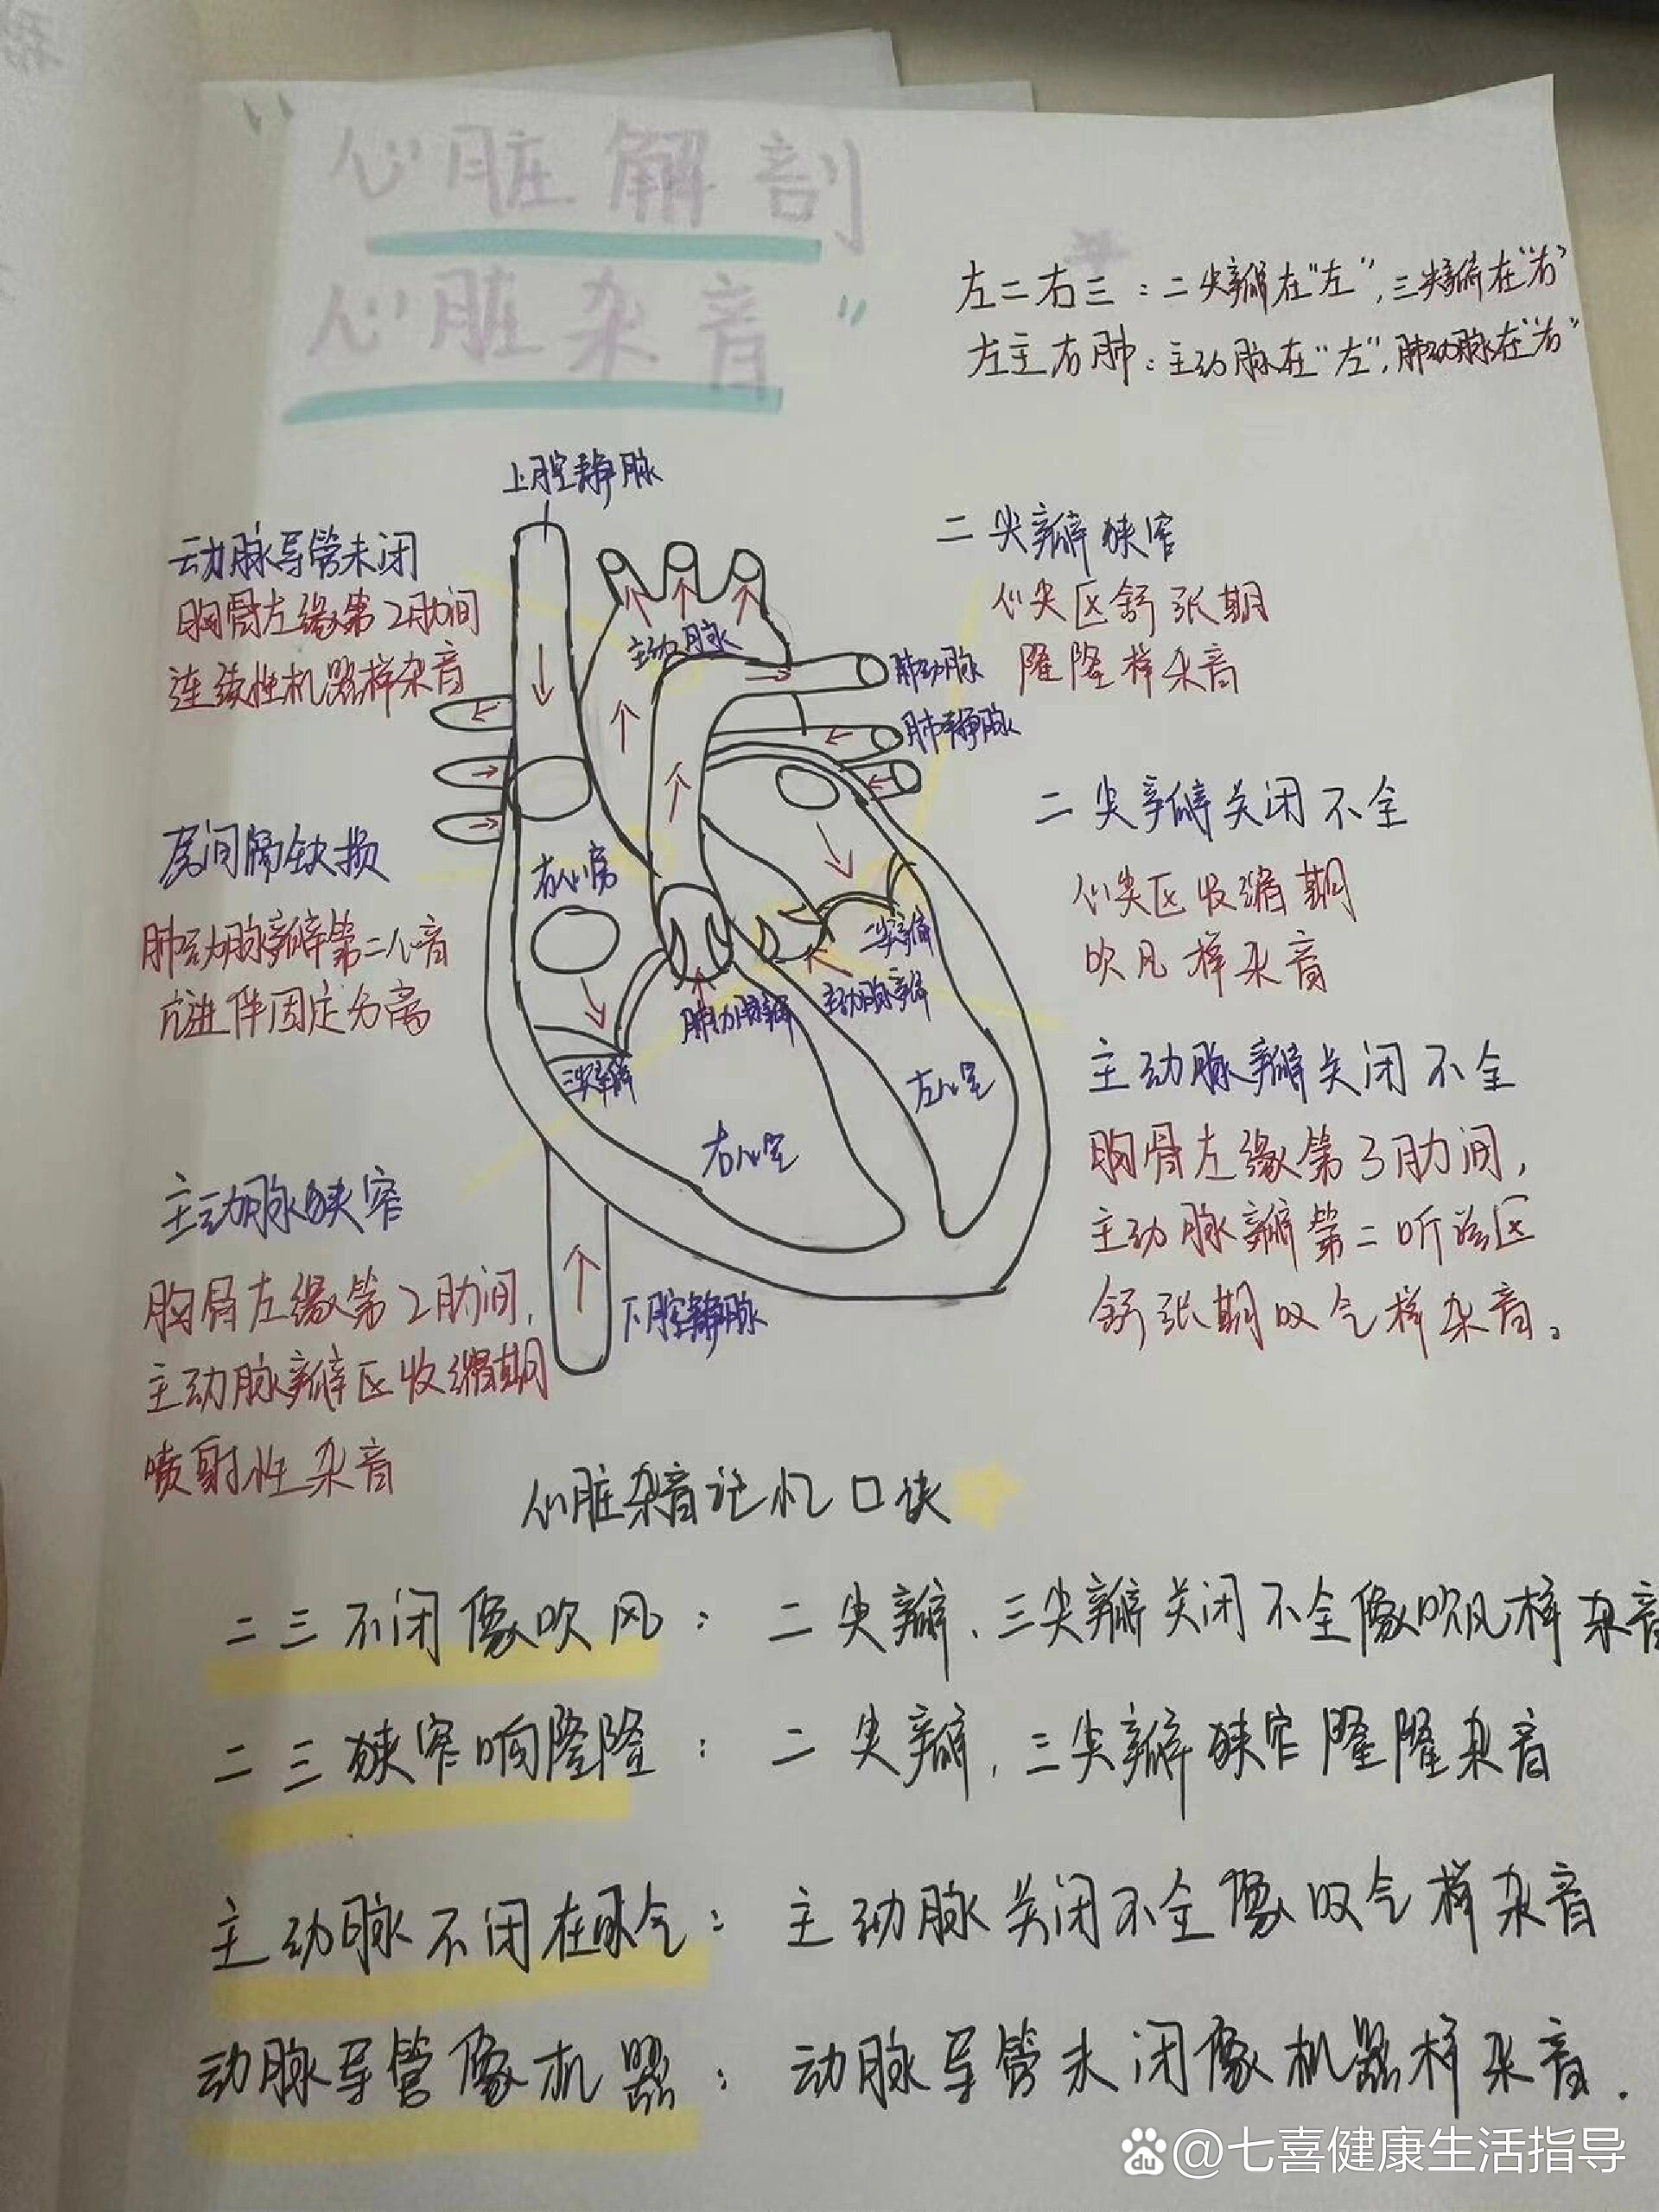 “心脏解剖
心脏杂音”
左二右三：二尖瓣在“左”，三尖瓣在“右”
左主右肺：主动脉在“左”，肺动脉在“右”
上腔静脉
动脉导管未闭
胸骨左缘第2肋间
连续性机器样杂音
房间隔缺损
肺动脉瓣第二心音
亢进伴固定分离
主动脉狭窄
胸骨左缘第2肋间，
主动脉瓣区收缩期
喷射性杂音
主动脉
肺动脉
肺静脉
右心房
二尖瓣
主动脉瓣
肺动脉瓣
三尖瓣
左心室
右心室
下腔静脉
二尖瓣狭窄
心尖区舒张期
隆隆样杂音
二尖瓣关闭不全
心尖区收缩期
吹风样杂音
主动脉瓣关闭不全
胸骨左缘第3肋间，
主动脉瓣第二听诊区
舒张期叹气样杂音。
心脏杂音记忆口诀
二三不闭像吹风：二尖瓣、三尖瓣关闭不全像吹风样杂音
二三狭窄响隆隆：二尖瓣，三尖瓣狭窄隆隆杂音
主动脉不闭在叹气：主动脉关闭不全像叹气样杂音
动脉导管像机器：动脉导管未闭像机器样杂音.
du @七喜健康生活指导